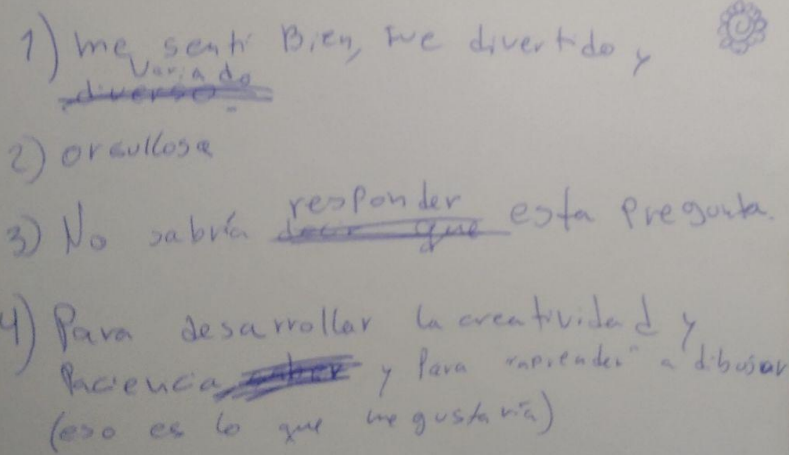 1) me sentí Bien, fue divertido y
variado
diverso
2) orgullosa
3) No sabría responder esta pregunta.
decir que
4) Para desarrollar la creatividad y
Paciencia, saber y Para "aprender" a dibujar
(eso es lo que me gustaría)